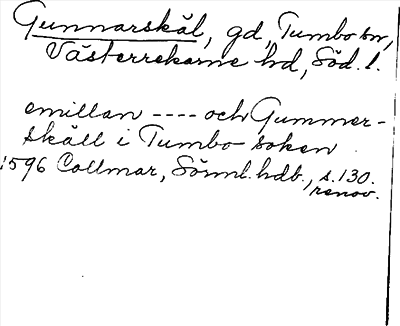 Gunnarskäl, gd, Tumbo sn,
Västerrekarne hd, Söd. l.
emillan ---- och Gummer-
skäll i Tumbo soken
1596 Collmar, Sörml. hdb., s. 130.
renov.